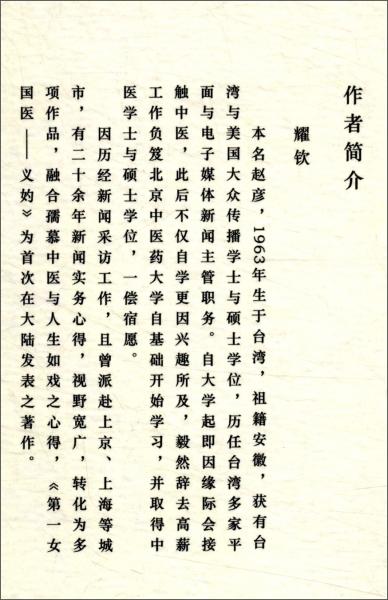 作者简介
耀钦
本名赵彦，1963年生于台湾，祖籍安徽，获有台
湾与美国大众传播学士与硕士学位，历任台湾多家平
面与电子媒体新闻主管职务。自大学起即因缘际会接
触中医，此后不仅自学更因兴趣所及，毅然辞去高薪
工作负笈北京中医药大学自基础开始学习，并取得中
医学士与硕士学位，一偿宿愿。
因历经新闻采访工作，且曾派赴上京、上海等城
市，有二十余年新闻实务心得，视野宽广，转化为多
项作品，融合孺慕中医与人生如戏之心得，《第一女
国医——义妁》为首次在大陆发表之著作。